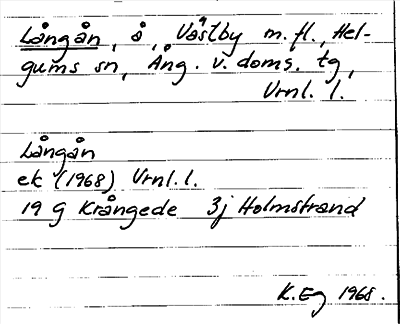 Långån, å, Västby m.fl., Hel-
gums sn, Ång. v. doms. tg,
Vrnl. l.
Långån
ek (1968) Vrnl. l.
19 G Krångede 3j Holmstrand
K. Eg 1968.